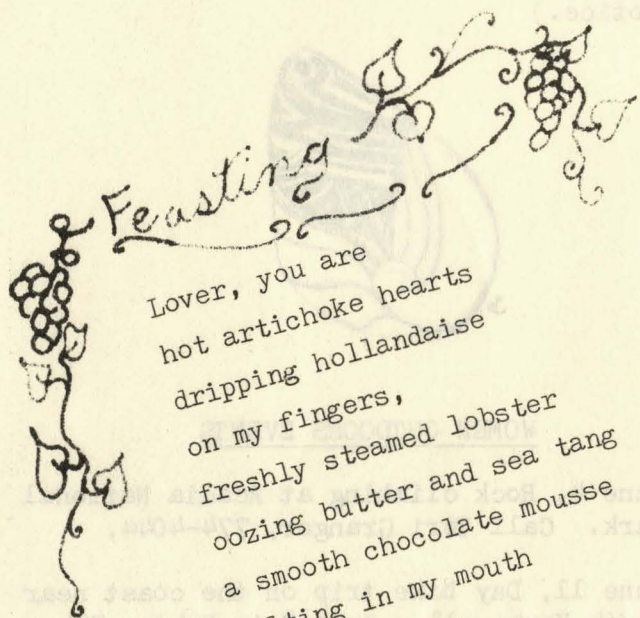 Feasting
Lover, you are
hot artichoke hearts
dripping hollandaise
on my fingers,
freshly steamed lobster
oozing butter and sea tang
a smooth chocolate mousse
lting in my mouth